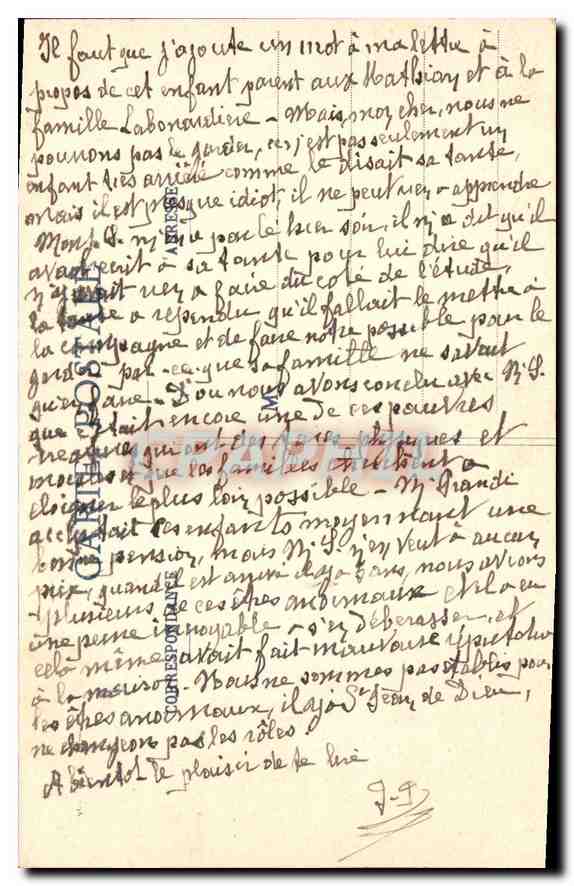 Il faut que j'ajoute un mot à ma lettre à
propos de cet enfant parent aux Mathian et à la
famille Labonardière - Mais, mon cher, nous ne
pouvons pas le garder, ce n'est pas seulement un
enfant très arriéré comme le disait sa tante,
mais il est presque idiot, il ne peut rien apprendre
Mons. S. m'en parlé hier soir, il m'a dit qu'il
avait écrit à sa tante pour lui dire qu'il
n'y avait rien à faire du côté de l'étude,
la tante a répondu qu'il fallait le mettre à
la campagne et de faire notre possible pour le
garder parce que sa famille ne savait
qu'en faire - D'où nous avons conclu avec M. S.
que c'était encore une de ces pauvres
qui ont des tares physiques et
morales et que les familles cherchent à
éloigner le plus loin possible - M. Grandi
acceptait ces enfants moyennant une
bonne pension, mais M. S. n'en veut à aucun
prix, quand il est arrivé il y a 3 ans, nous avions
plusieurs de ces êtres anormaux et il a eu
une peine incroyable à s'en débarasser, et
cela même avait fait mauvaise réputation
à la maison. Nous ne sommes pas établis pour
les êtres anormaux, il y a St Jean de Dieu,
ne changeons pas les rôles.
A bientôt le plaisir de te lire
J-P
CARTE POSTALE
CORRESPONDANCE
ADRESSE
M
CPARAMA